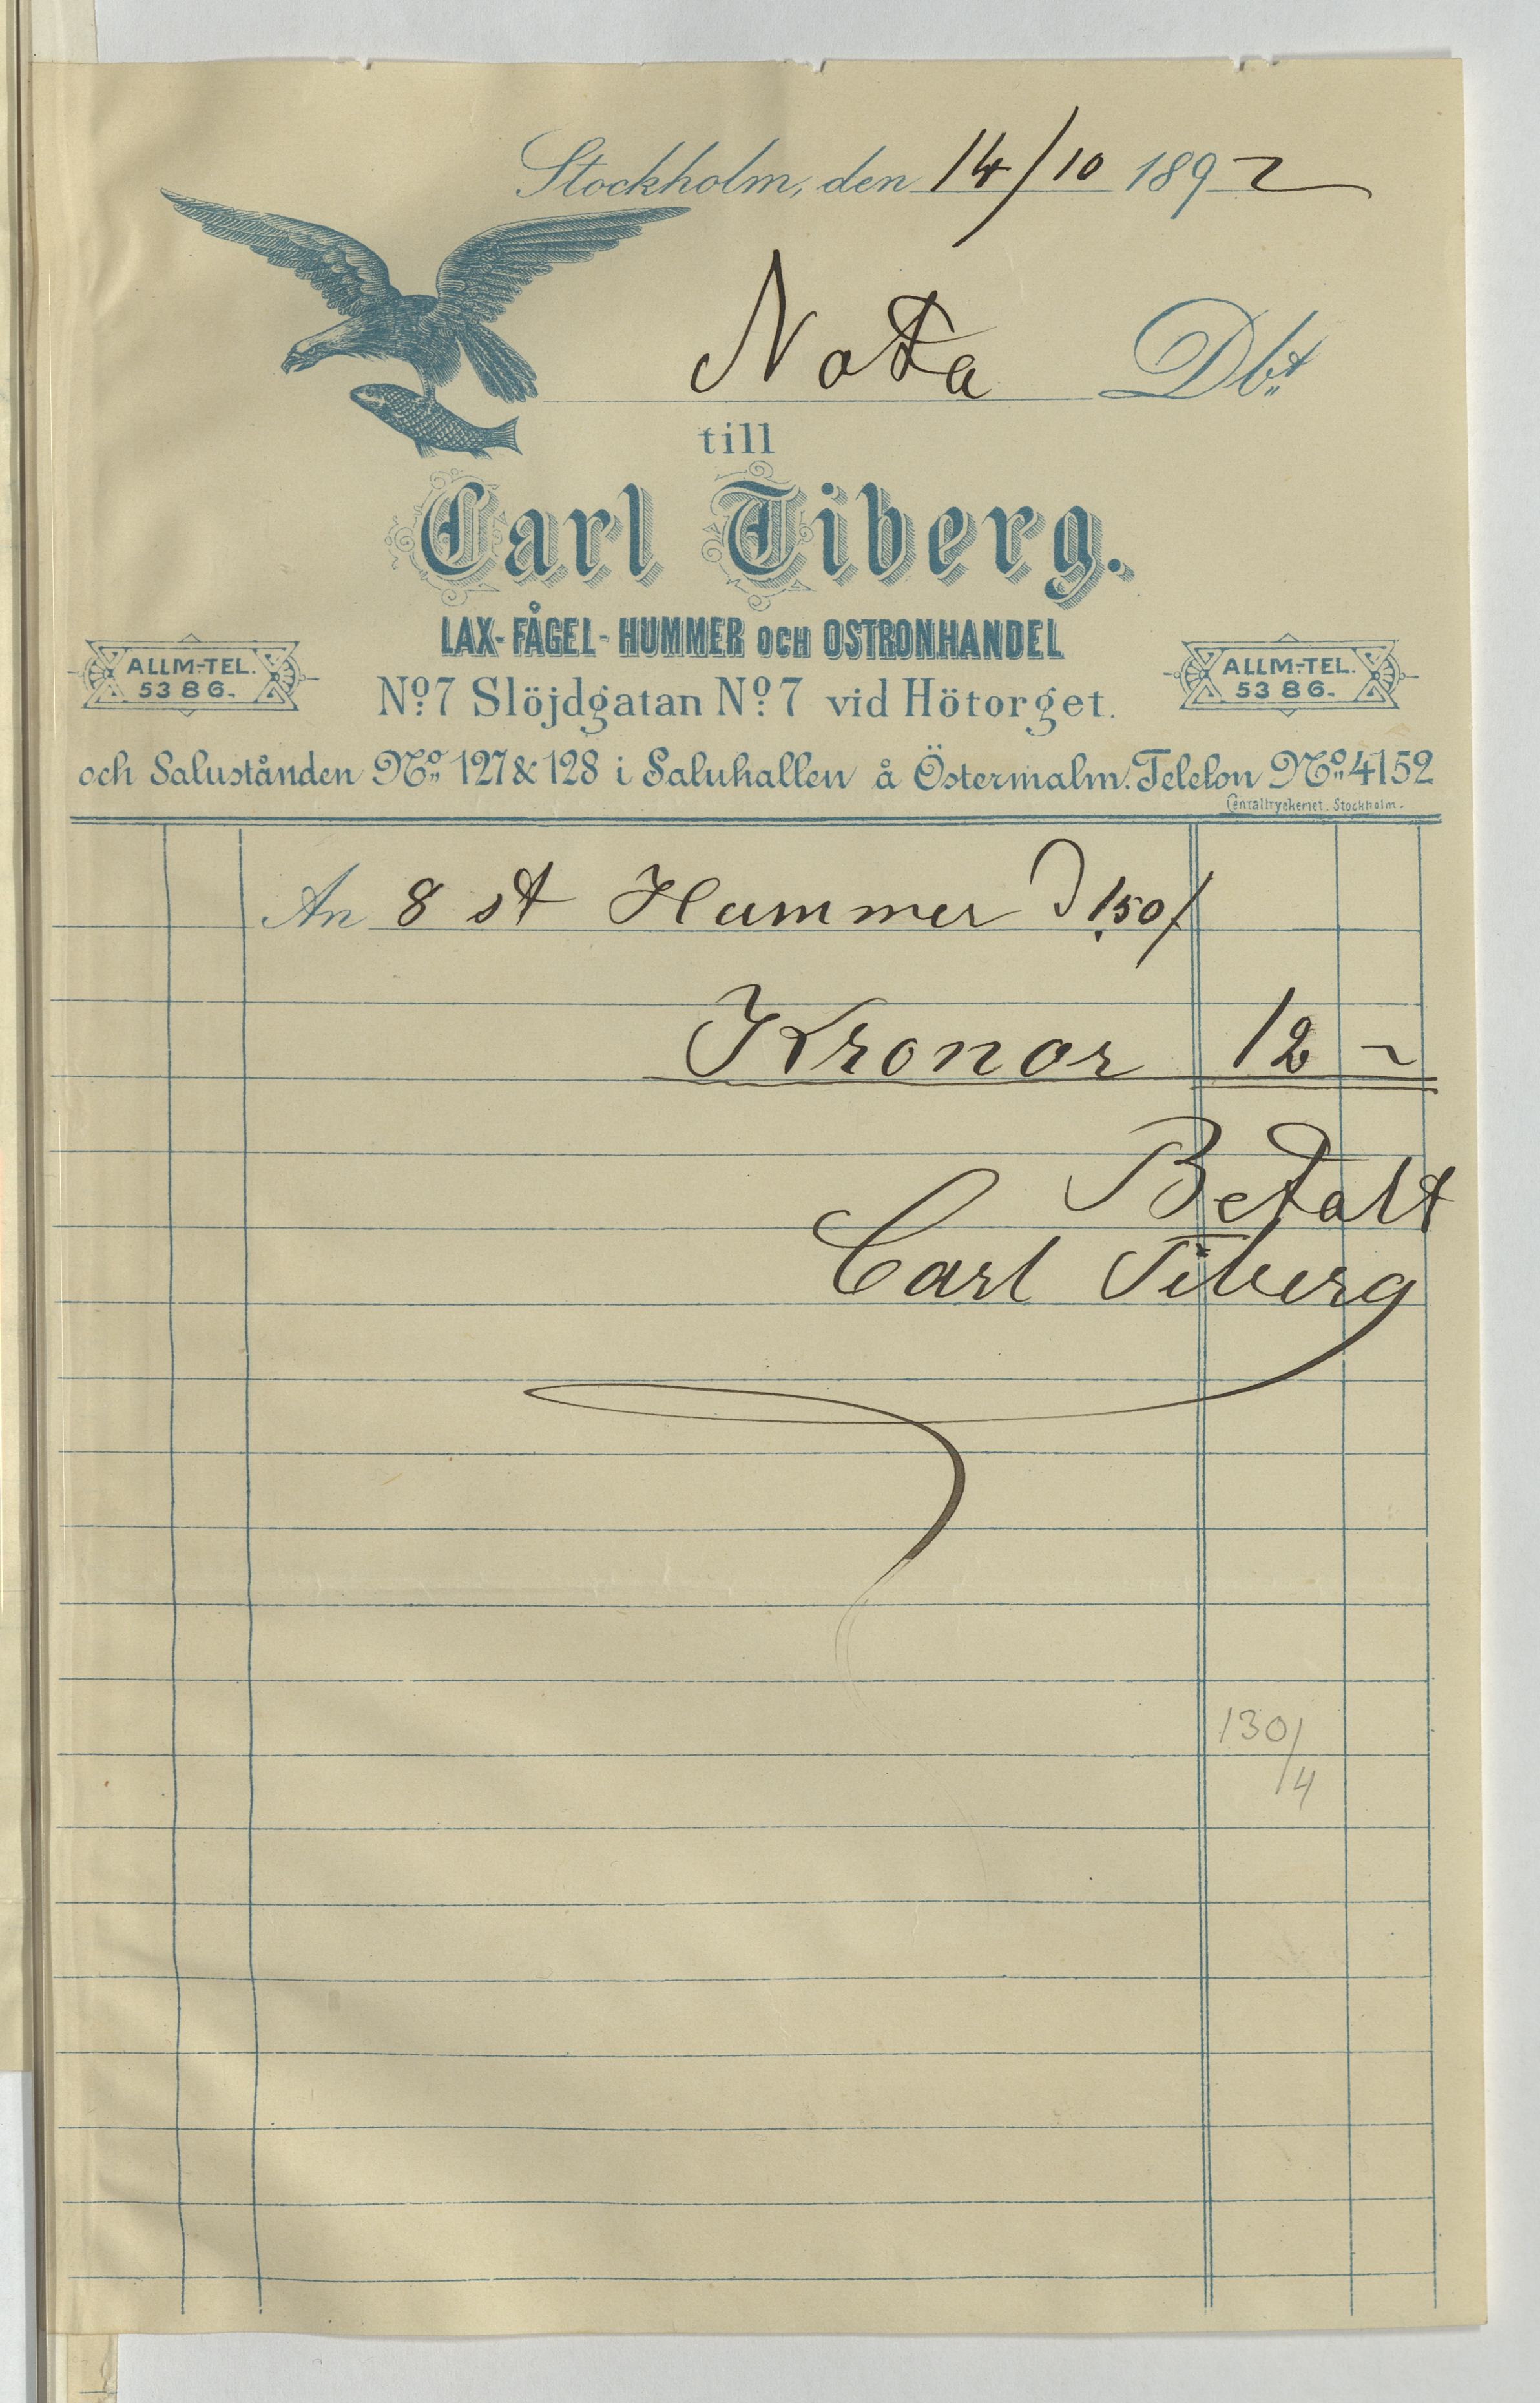 Stockholm, den 14/10 1892
Nota Dbt
till
Carl Tiberg.
LAX- FÅGEL- HUMMER OCH OSTRONHANDEL
ALLM-TEL. 5386.
ALLM-TEL. 5386.
No. 7 Slöjdgatan No. 7 vid Hötorget.
och Salustånden No. 127 & 128 i Saluhallen å Östermalm. Telefon No. 4152
Centraltryckeriet. Stockholm.
An 8 st Hummer 1,50/
Kronor 12 ~
Betalt
Carl Tiberg
130/4